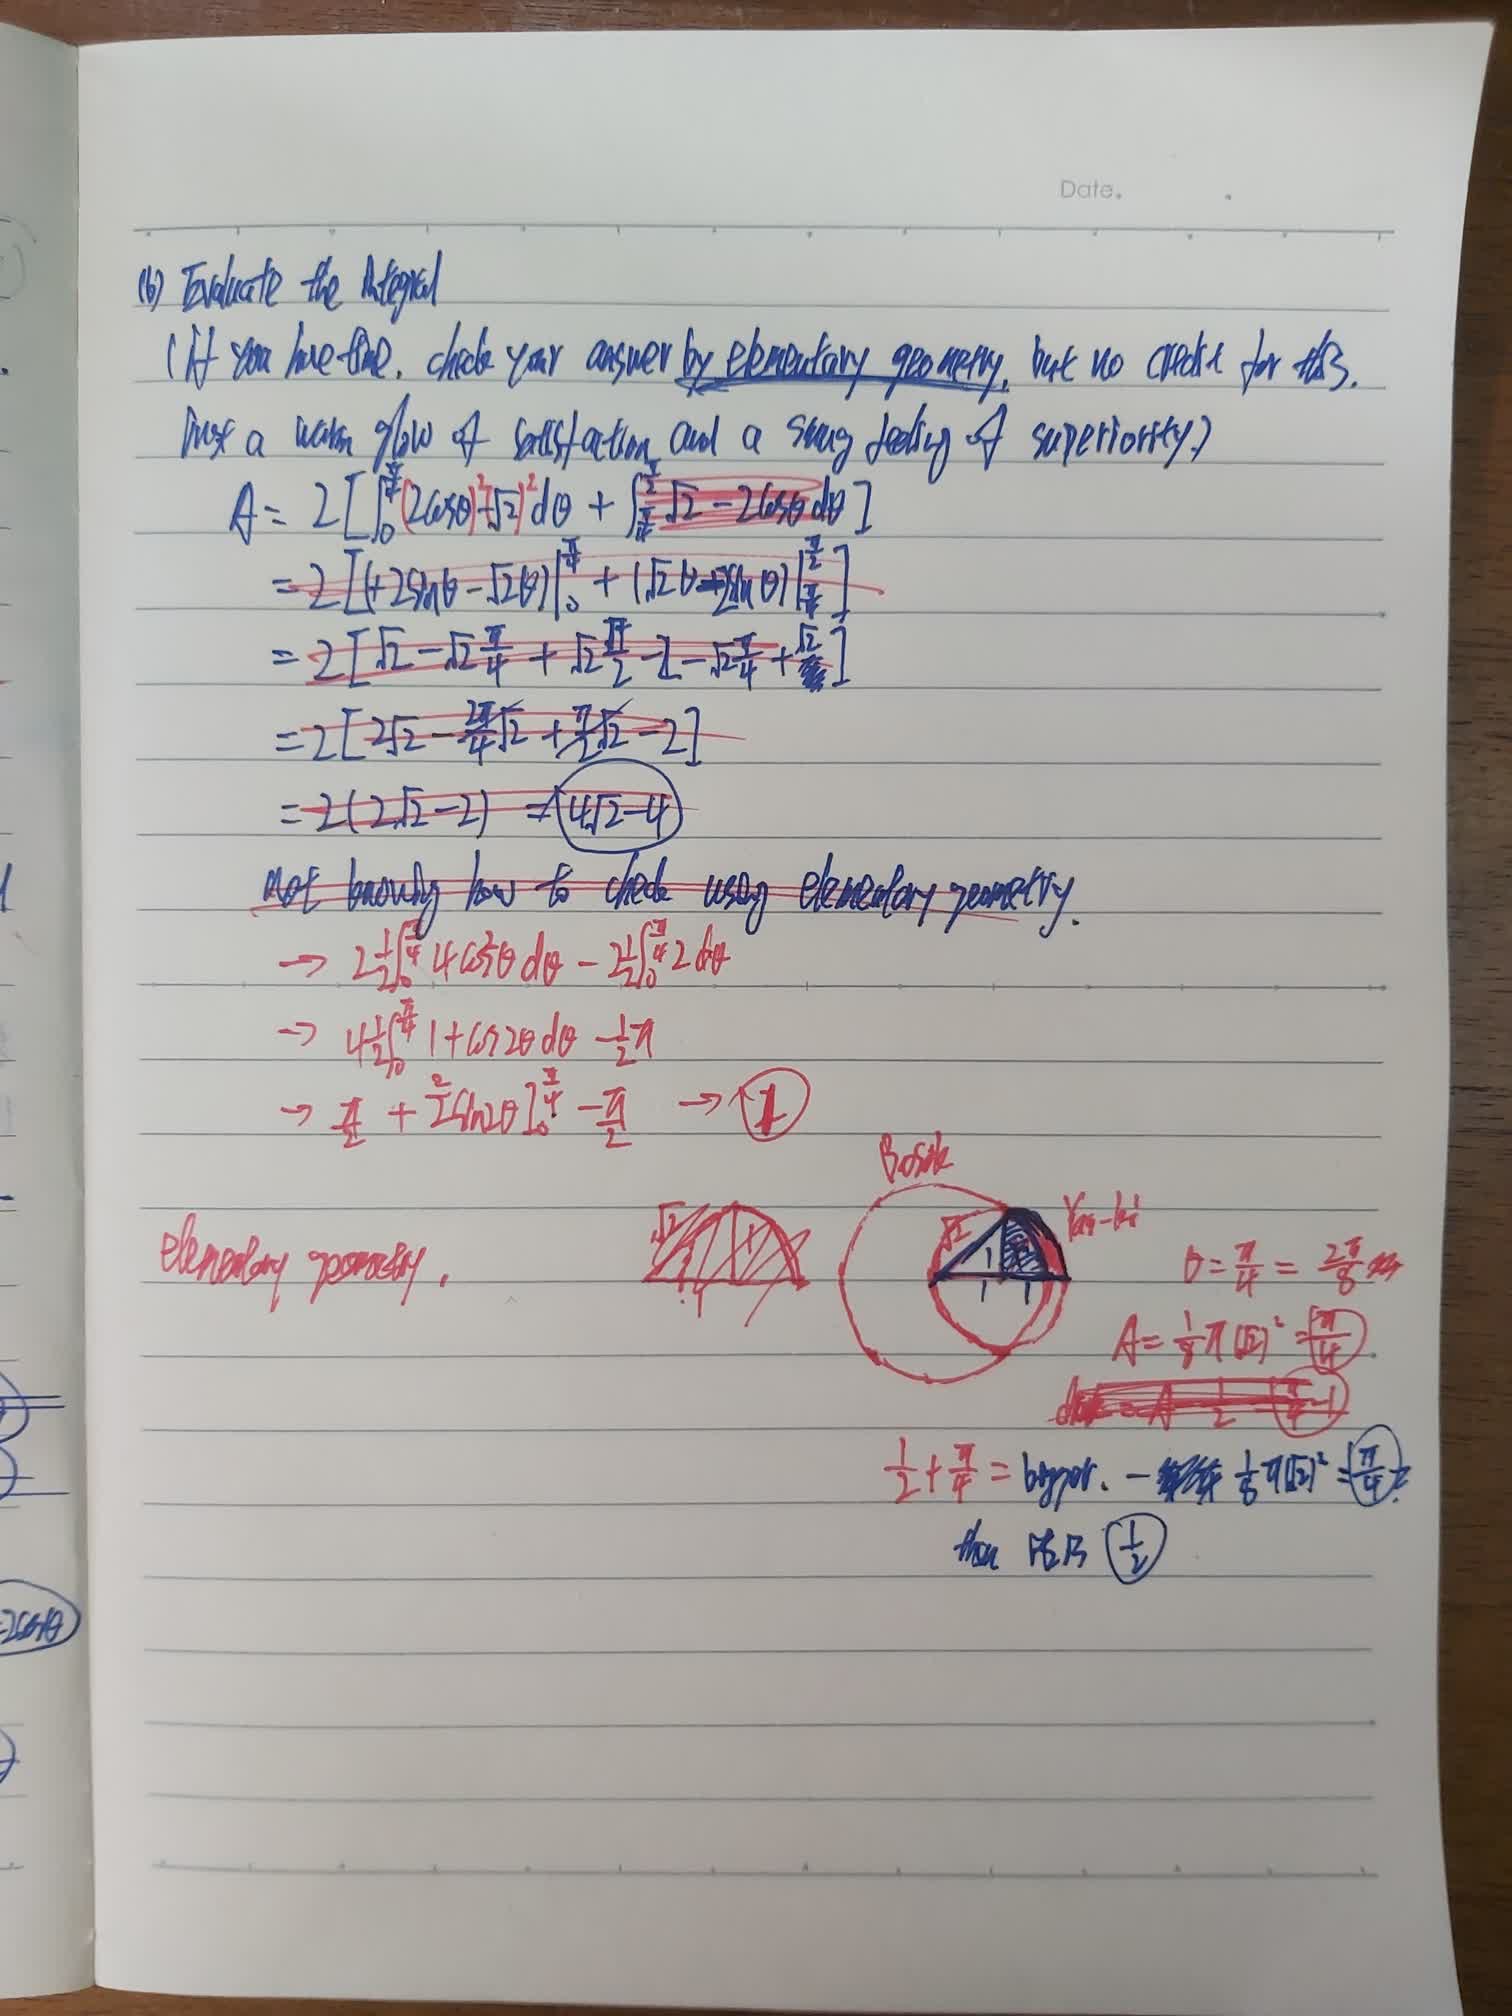 Date.
(b) Evaluate the integral
(if you have time, check your answer by elementary geometry, but no credit for this.
Just a warm glow of satisfaction and a smug feeling of superiority.)
A = 2[∫₀^{π/4} (2cosθ)² - (√2)² dθ + ∫_{π/4}^{π/2} √2 - 2cosθ dθ]
= 2[(+2sinθ - √2θ)|₀^{π/4} + (√2θ - 2sinθ)|_{π/4}^{π/2}]
= 2[√2 - √2 π/4 + √2 π/2 - 2 - √2 π/4 + √2]
= 2[2√2 - 2π/4 √2 + π/2 √2 - 2]
= 2(2√2 - 2) = 4√2 - 4
not knowing how to check using elementary geometry.
→ 2 1/2 ∫₀^{π/4} 4cos²θ dθ - 2 1/2 ∫₀^{π/4} 2 dθ
→ 4 1/2 ∫₀^{π/4} 1 + cos2θ dθ - 1/2 π
→ π/2 + 2/2 sin2θ]₀^{π/4} - π/2 → 1
elementary geometry.
√2
√2
1
1 1
θ = π/4 = 2π/8
A = 1/8 π(√2)² = π/4
1/2 + π/4 = - 1/8 π(√2)² = π/4
then 1/2
=2cosθ